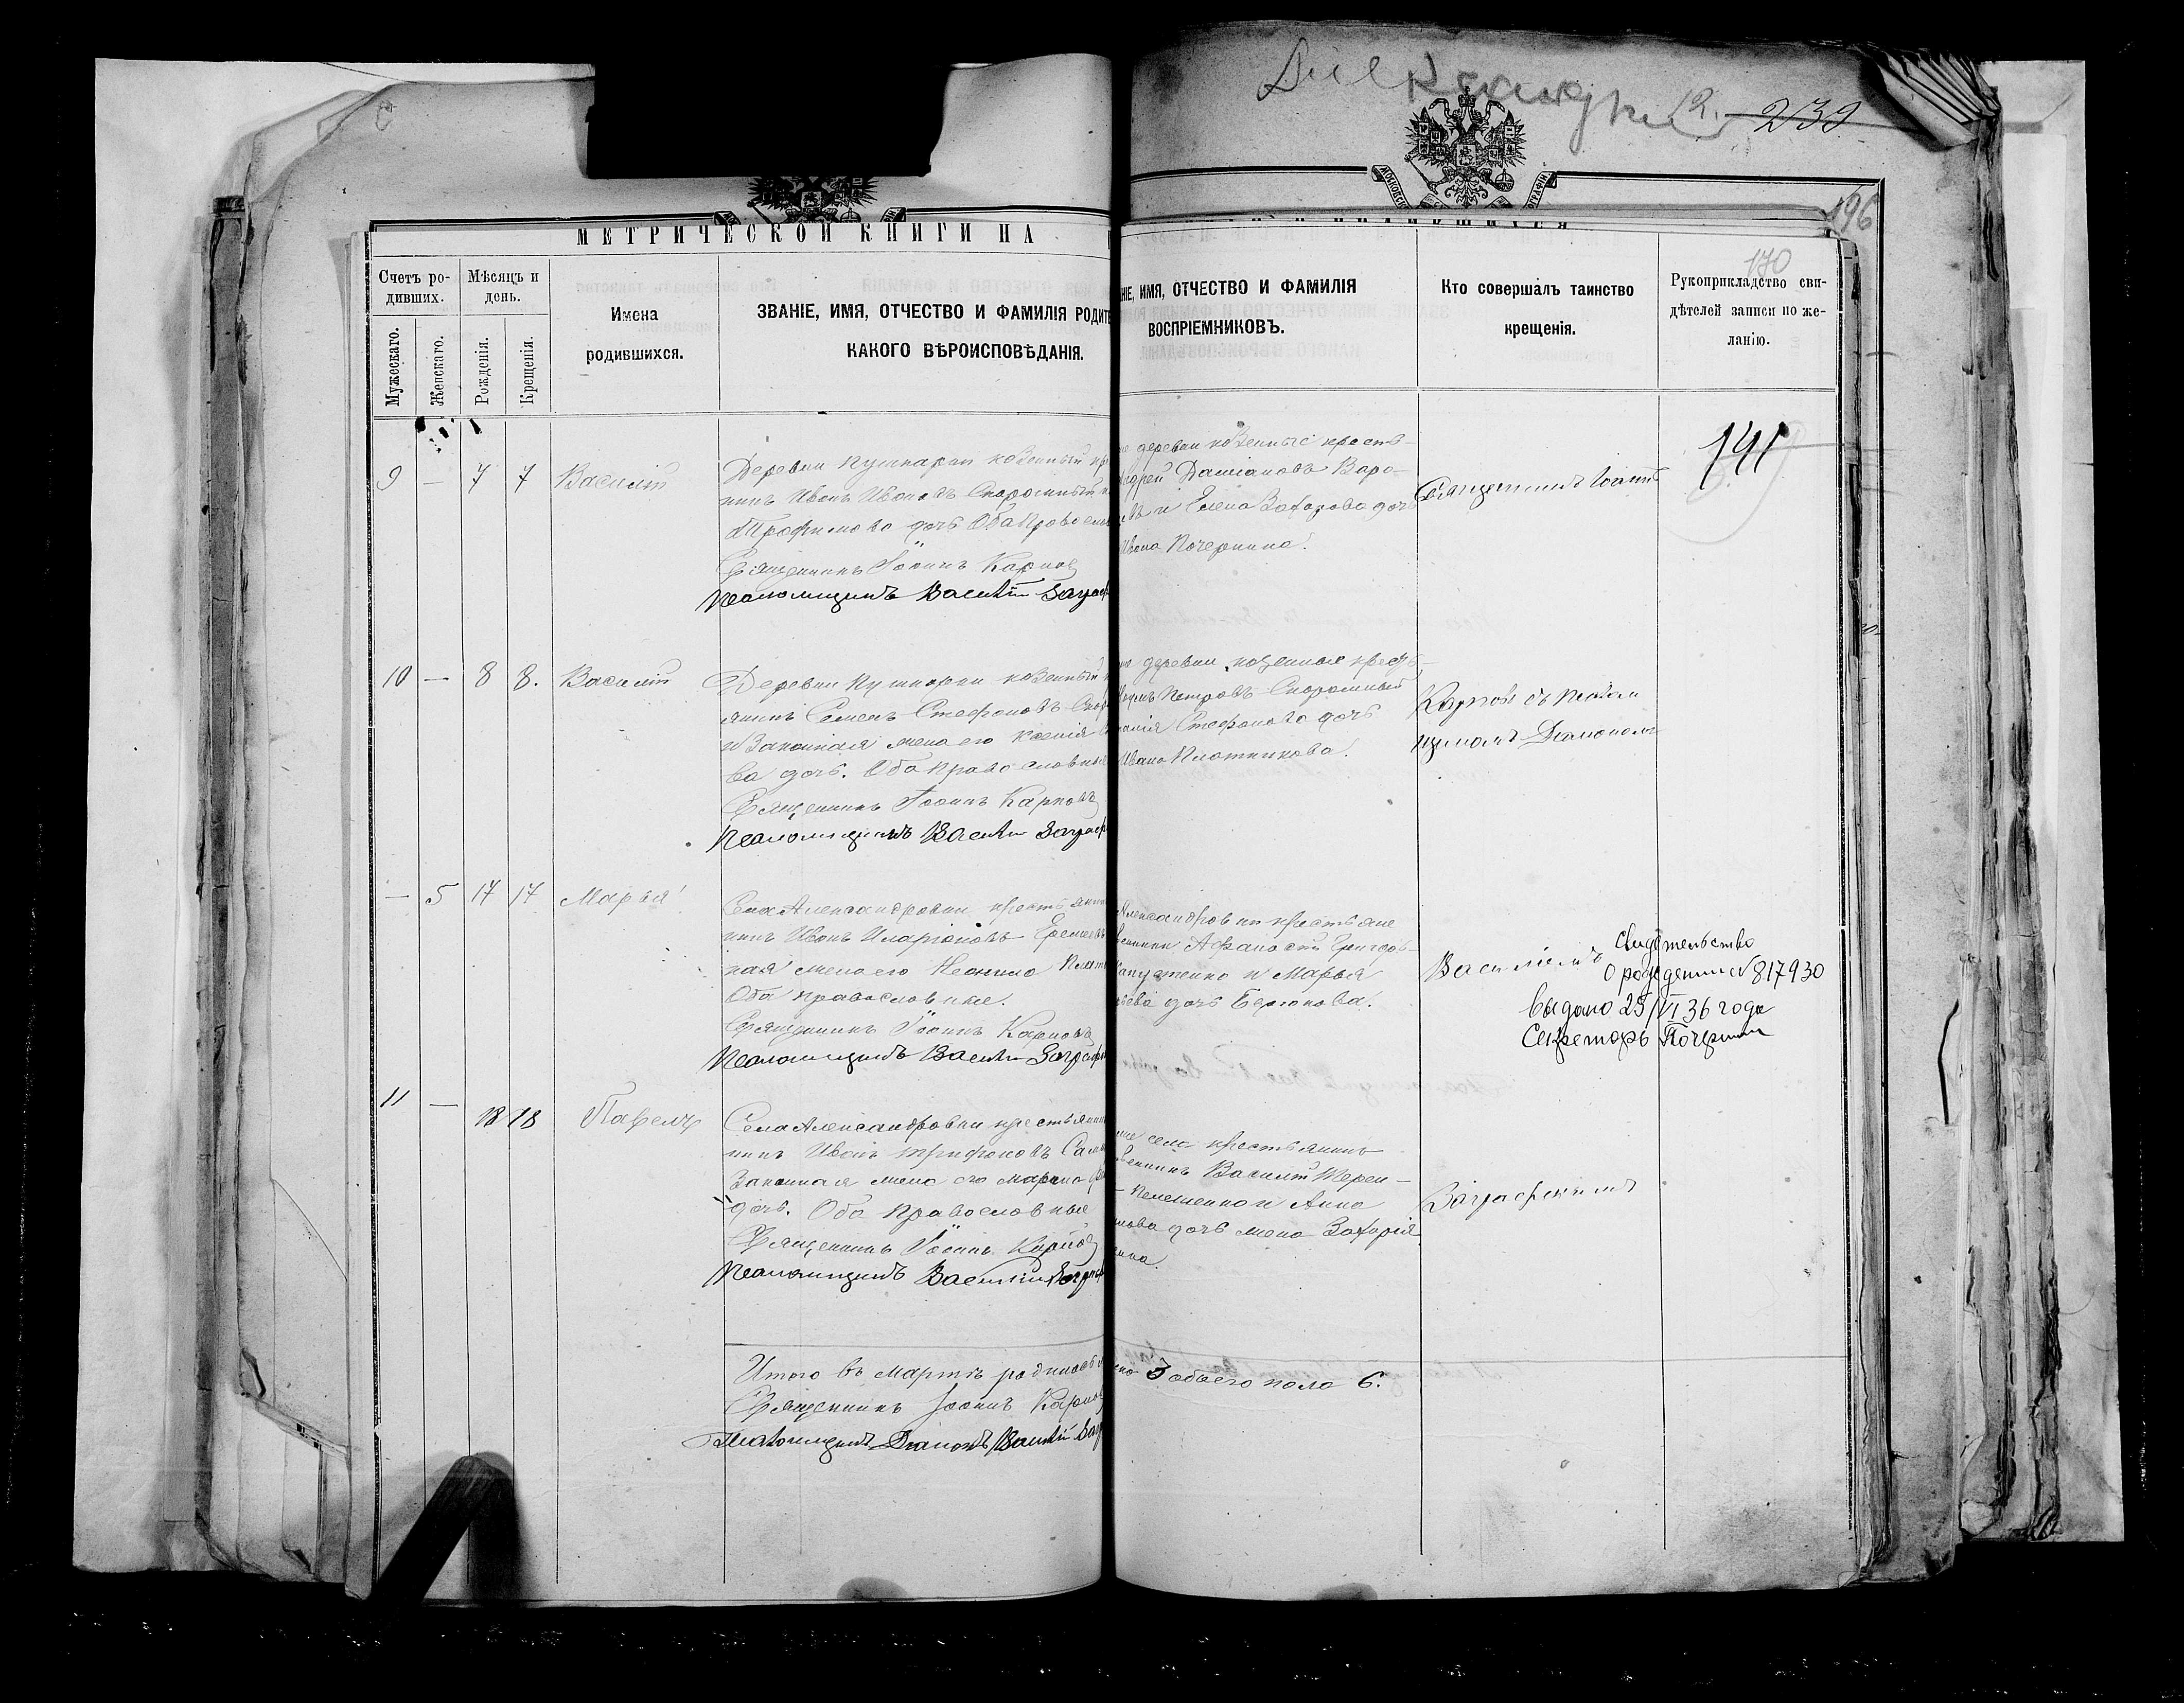 239
196
170
МЕТРИЧЕСКОЙ КНИГИ НА
Счетъ ро-
дившихъ.
Мѣсяцъ и
день.
Мужескаго.
Женскаго.
Рожденія.
Крещенія.
Имена
родившихся.
ЗВАНІЕ, ИМЯ, ОТЧЕСТВО И ФАМИЛІЯ РОДИТЕ
КАКОГО ВѢРОИСПОВѢДАНІЯ.
НІЕ, ИМЯ, ОТЧЕСТВО И ФАМИЛІЯ
ВОСПРІЕМНИКОВЪ.
Кто совершалъ таинство
крещенія.
Рукоприкладство сви-
дѣтелей записи по же-
ланію.
9 — 7 7 Василій
Деревни Пушкарни казенный кр
нинъ Иванъ Ивановъ Скоромный
Трофимова дочь Оба православ
Священникъ Іоаннъ Карпов
Псаломщикъ Василій Заграф
деревни казенные кресть-
Андрей Даміановъ Варо-
и Елена Захарова дочь
Ивана Почернина.
Священникъ Іоаннъ
191
10 — 8 8. Василій
Деревни Пушкарни казенный
янинъ Семенъ Стефановъ Скор
и Законная жена его Ксенія
ва дочь. Оба православные
Священникъ Іоаннъ Карповъ
Псаломщикъ Василій Заграф
деревни казенные кресть-
Петровъ Скоромный
Стефанова дочь
Ивана Плотникова.
Карповъ съ Псалом
щикомъ Діакономъ
— 5 17 17 Марья
Села Александровки крестьянин
никъ Иванъ Иларіоновъ Еремеев
ная жена его Неонила
Оба православные.
Священникъ Іоаннъ Карповъ
Псаломщикъ Василій Заграф
Александровки крестьяне
Афанасій Григорь-
Капустенко и Марья
дочь Бережнова.
Василіемъ
Свидетельство
о рождении №817930
выдано 25/VI 36 года
Секретарь Почернин
11 — 18 18 Павелъ
Села Александровки крестьянин
никъ Иванъ Трифоновъ Сам
Законная жена его Марина
дочь. Оба православные
Священникъ Іоаннъ Карпов
Псаломщикъ Василій Заграф
села крестьянинъ
Василій Терен-
и Анна
нова дочь жена Захарія
Заграфскимъ
Итого въ Мартѣ родилось
3 обоего пола 6.
Священникъ Іоаннъ Карпов
Псаломщикъ Діаконъ Василій Заг